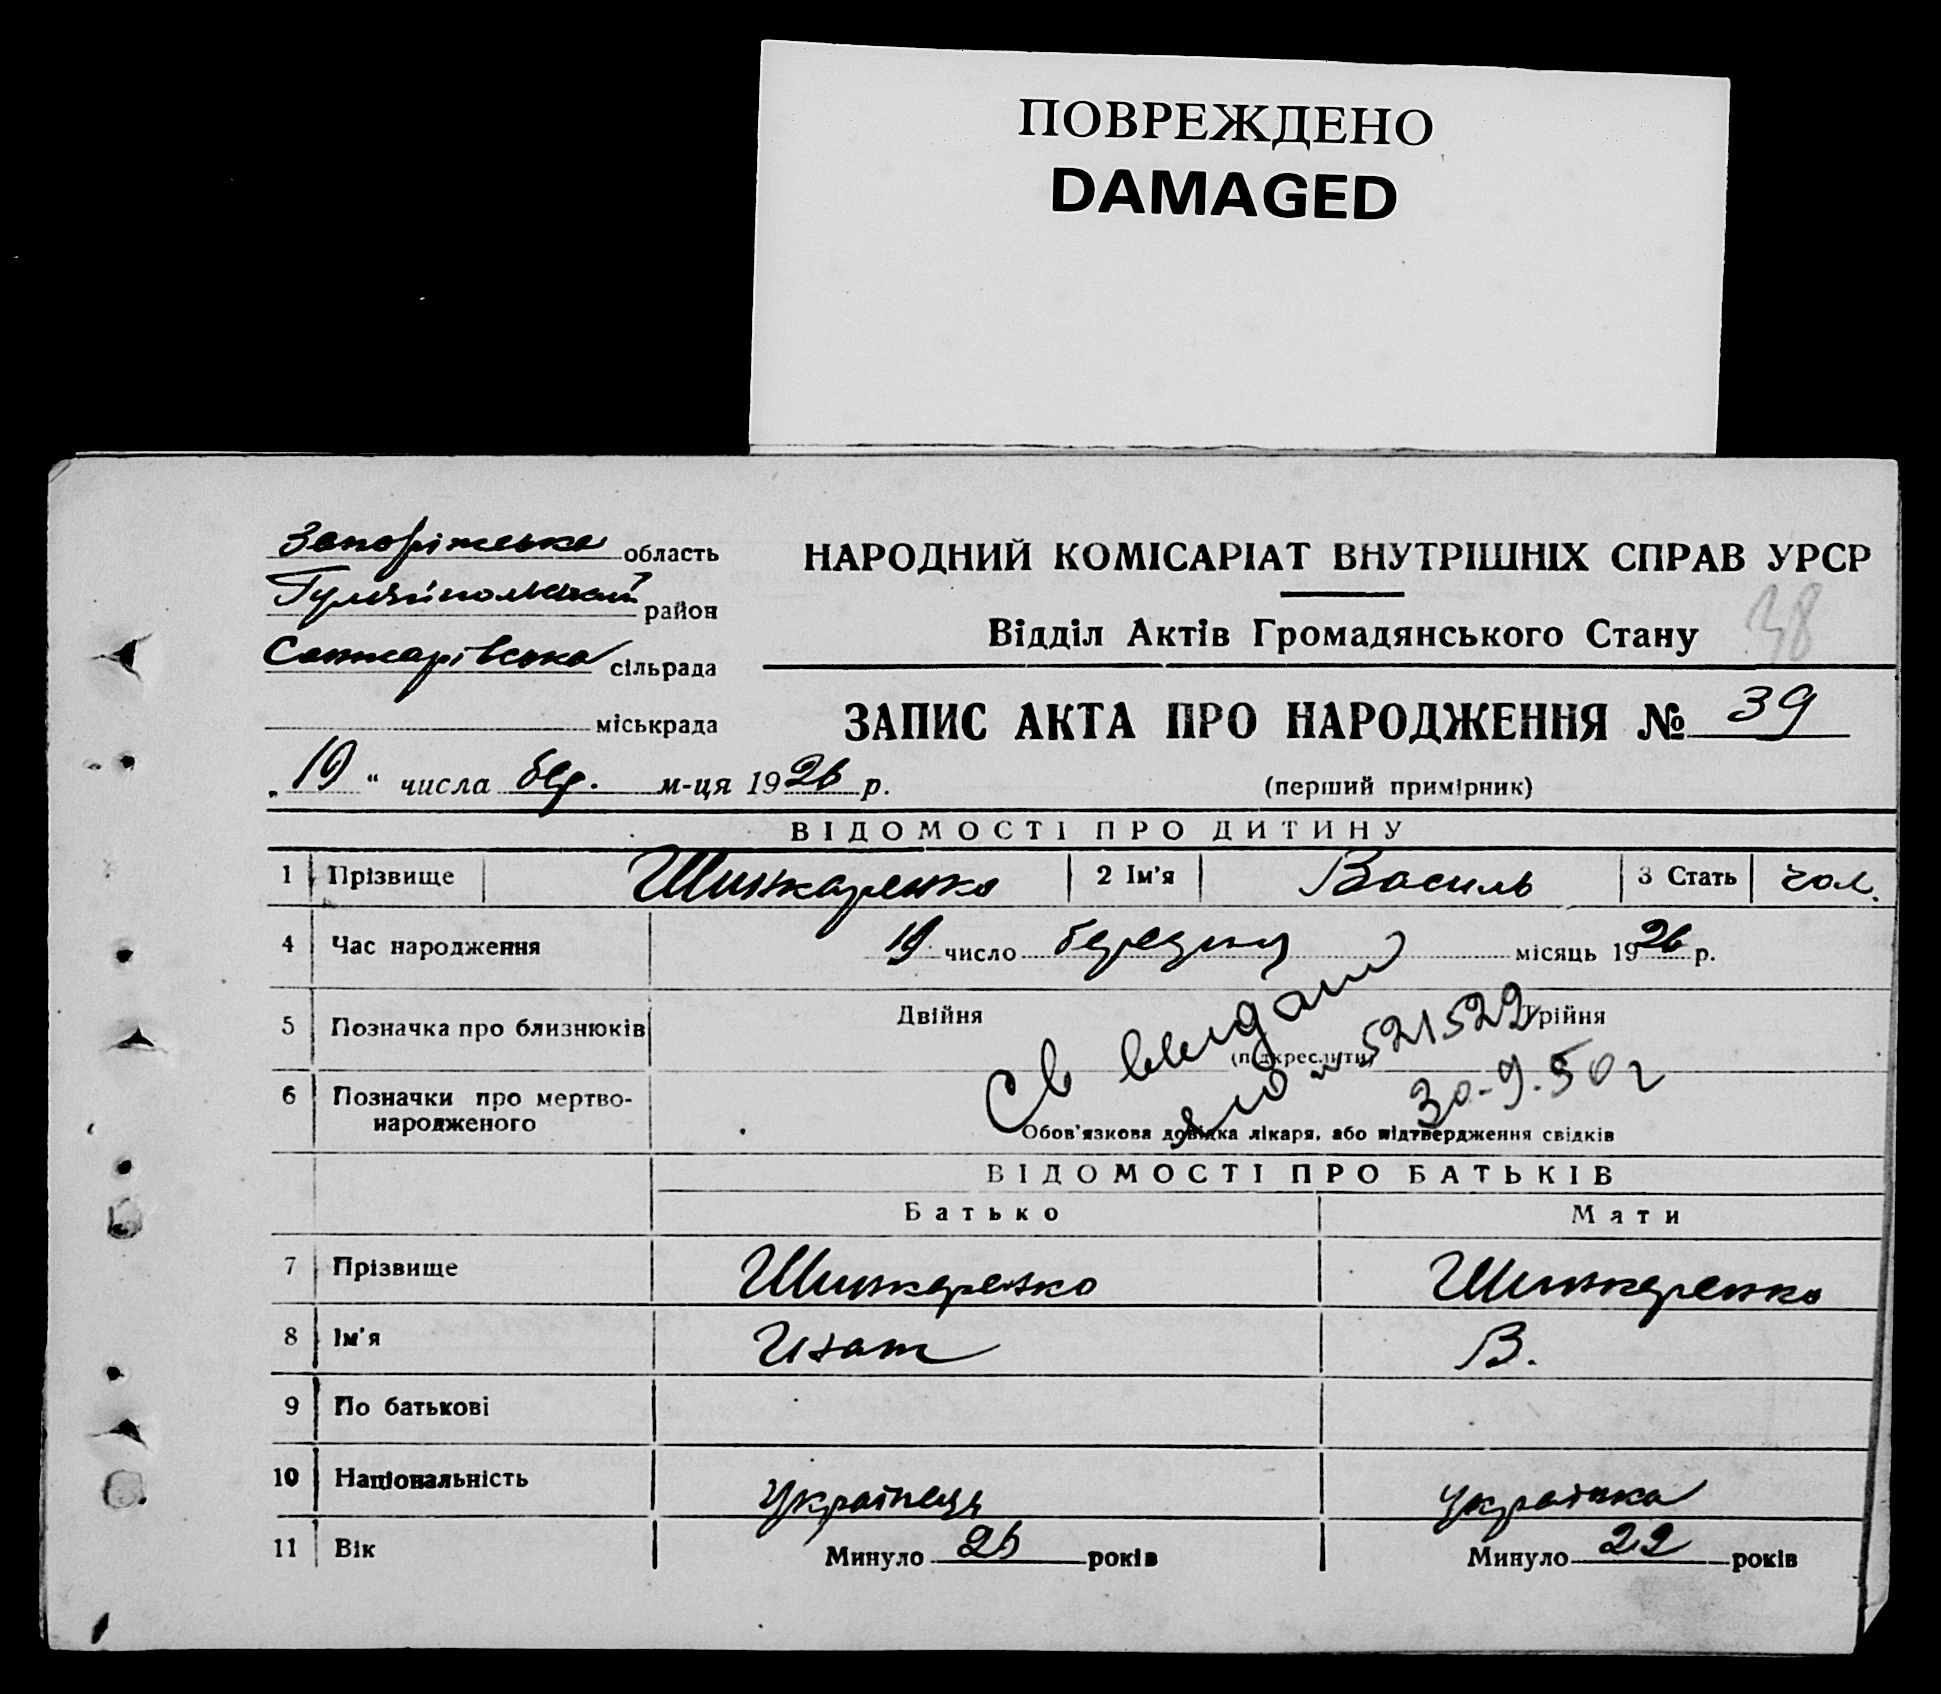 ПОВРЕЖДЕНО
DAMAGED
Запоріжська область
Гуляйпольський район
Санжарівська сільрада
міськрада
„19“ числа бер. м-ця 1926 р.
НАРОДНИЙ КОМІСАРІАТ ВНУТРІШНІХ СПРАВ УРСР
Відділ Актів Громадянського Стану
38
ЗАПИС АКТА ПРО НАРОДЖЕННЯ № 39
(перший примірник)
ВІДОМОСТІ ПРО ДИТИНУ
1 Прізвище Шинкаренко 2 Ім'я Василь 3 Стать чол.
4 Час народження 19 число березня місяць 1926 р.
5 Позначка про близнюків Двійня Трійня
(підкреслити)
Св выдано
ЯЮ № 521522
30-9-50 г
6 Позначки про мертво-
народженого
Обов'язкова довідка лікаря, або підтвердження свідків
ВІДОМОСТІ ПРО БАТЬКІВ
Батько Мати
7 Прізвище Шинкаренко Шинкаренко
8 Ім'я Игнат В.
9 По батькові
10 Національність українець українка
11 Вік Минуло 26 років Минуло 22 років